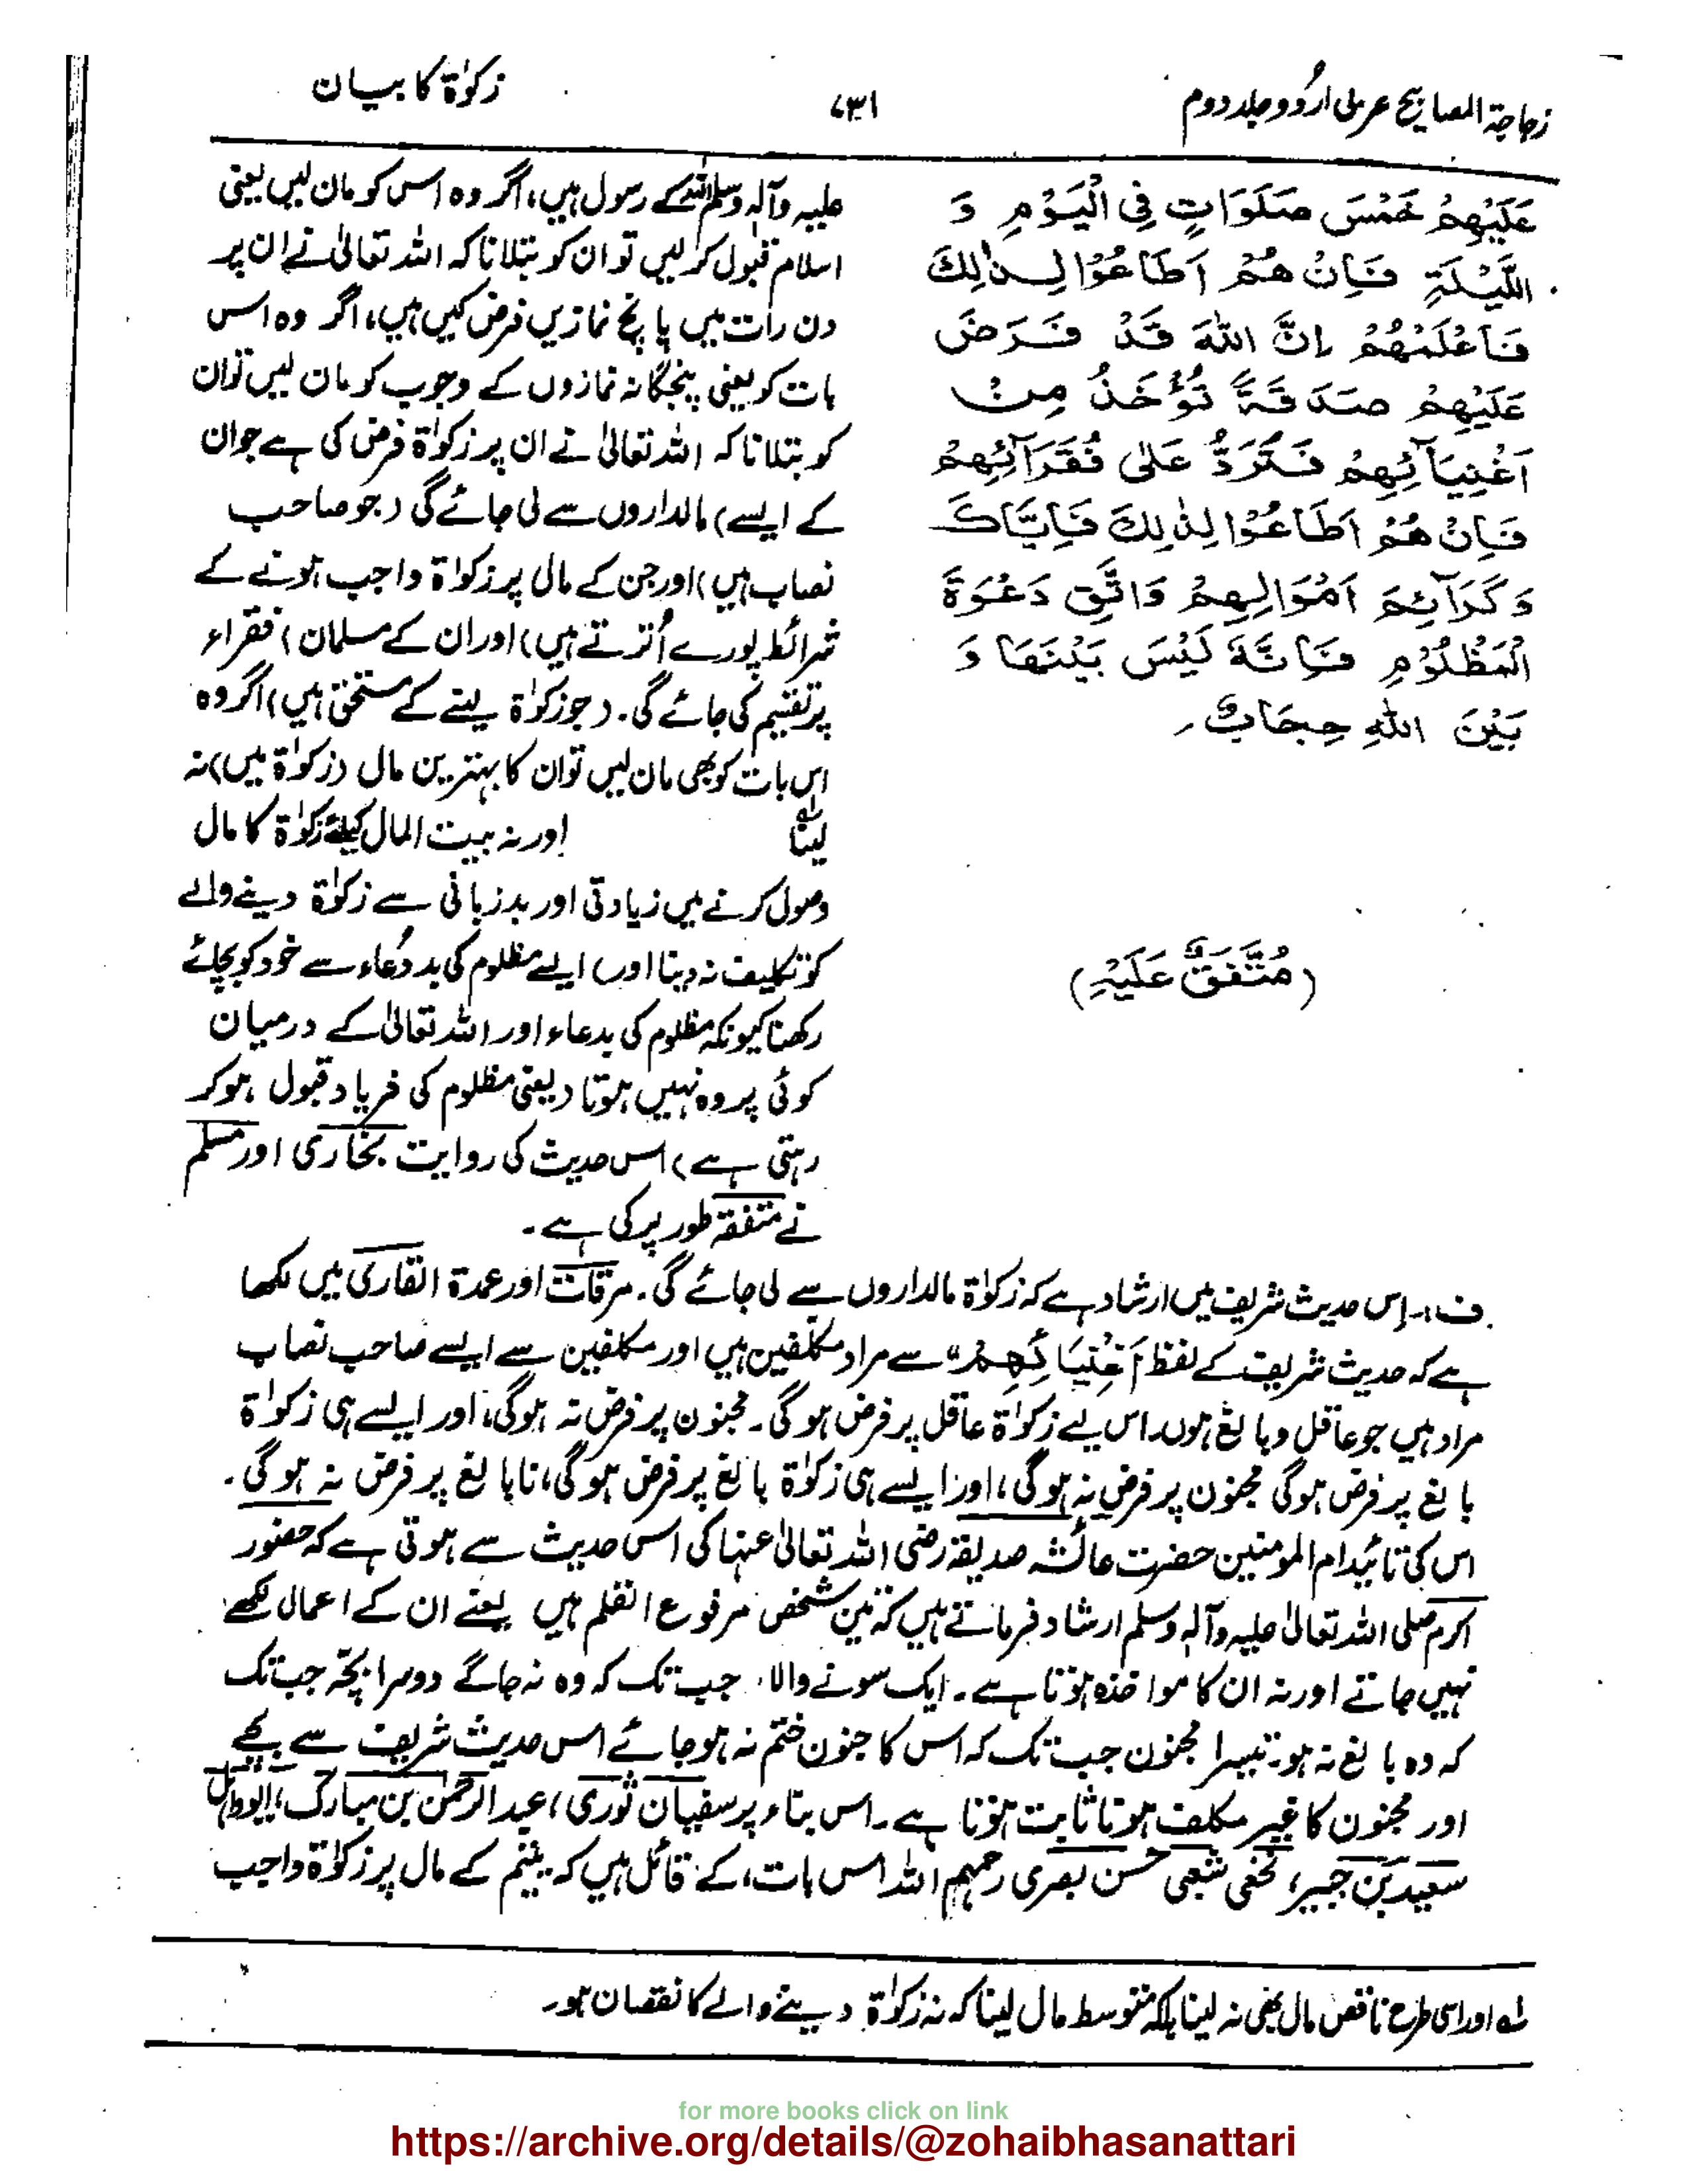 زجاجۃ المصابیح عربی اردو جلد دوم
۷۳۱
زکوٰۃ کا بیان
عَلَيْهِمْ خَمْسَ صَلَوَاتٍ فِي الْيَوْمِ وَ
اللَّيْلَةِ فَإِنْ هُمْ أَطَاعُوْا لِذٰلِكَ
فَأَعْلِمْهُمْ إِنَّ اللهَ قَدْ فَرَضَ
عَلَيْهِمْ صَدَقَةً تُؤْخَذُ مِنْ
أَغْنِيَآئِهِمْ فَتُرَدُّ عَلٰى فُقَرَآئِهِمْ
فَإِنْ هُمْ أَطَاعُوْا لِذٰلِكَ فَإِيَّاكَ
وَكَرَآئِمَ أَمْوَالِهِمْ وَاتَّقِ دَعْوَةَ
الْمَظْلُوْمِ فَإِنَّهُ لَيْسَ بَيْنَهَا وَ
بَيْنَ اللهِ حِجَابٌ۔
(مُتَّفَقٌ عَلَيْهِ)
علیہ وآلہ وسلم اللہ کے رسول ہیں، اگر وہ اس کو مان لیں یعنی
اسلام قبول کر لیں تو ان کو بتلانا کہ اللہ تعالیٰ نے ان پر
دن رات میں پانچ نمازیں فرض کیں ہیں، اگر وہ اس
بات کو یعنی پنجگانہ نمازوں کے وجوب کو مان لیں تو ان
کو بتلانا کہ اللہ تعالیٰ نے ان پر زکوٰۃ فرض کی ہے جو ان
کے ایسے) مالداروں سے لی جائے گی (جو صاحب
نصاب ہیں) اور جن کے مال پر زکوٰۃ واجب ہونے کے
شرائط پورے اُترتے ہیں) اور ان کے مسلمان) فقراء
پر تقسیم کی جائے گی۔ (جو زکوٰۃ لینے کے مستحق ہیں) اگر وہ
اس بات کو بھی مان لیں تو ان کا بہترین مال (زکوٰۃ میں) نہ
لینا اور نہ بیت المال کیلئے زکوٰۃ کا مال
وصول کرنے میں زیادتی اور بد زبانی سے زکوٰۃ دینے والے
کو تکلیف نہ دینا اور) ایسے مظلوم کی بد دُعاء سے خود کو بچائے
رکھنا کیونکہ مظلوم کی بدعاء اور اللہ تعالیٰ کے درمیان
کوئی پردہ نہیں ہوتا (یعنی مظلوم کی فریاد قبول ہو کر
رہتی ہے) اس حدیث کی روایت بخاری اور مسلم
نے متفقہ طور پر کی ہے۔
ف:۔ اِس حدیث شریف میں ارشاد ہے کہ زکوٰۃ مالداروں سے لی جائے گی۔ مرقات اور عمدۃ القاری میں لکھا
ہے کہ حدیث شریف کے لفظ اَغْنِیَائِہِمْ" سے مراد مکلّفین ہیں اور مکلفین سے ایسے صاحب نصاب
مراد ہیں جو عاقل و بالغ ہوں۔ اس لیے زکوٰۃ عاقل پر فرض ہو گی۔ مجنون پر فرض نہ ہوگی، اور ایسے ہی زکوٰۃ
بالغ پر فرض ہوگی مجنون پر فرض نہ ہوگی، اور ایسے ہی زکوٰۃ بالغ پر فرض ہو گی، نابالغ پر فرض نہ ہو گی۔
اس کی تائید ام المومنین حضرت عائشہ صدیقہ رضی اللہ تعالیٰ عنہا کی اس حدیث سے ہوتی ہے کہ حضور
اکرم صلی اللہ تعالیٰ علیہ وآلہ وسلم ارشاد فرماتے ہیں کہ تین شخص مرفوع القلم ہیں یعنے ان کے اعمال لکھے
نہیں جاتے اور نہ ان کا مواخذہ ہوتا ہے۔ ایک سونے والا جب تک کہ وہ نہ جاگے دوسرا بچّہ جب تک
کہ وہ بالغ نہ ہو، تیسرا مجنون جب تک کہ اس کا جنون ختم نہ ہو جائے اس حدیث شریف سے بچے
اور مجنون کا غیر مکلف ہونا ثابت ہوتا ہے۔ اس بناء پر سفیان ثوری، عبد الرحمٰن بن مبارک، ابووائل
سعید بن جبیر، نخعی شعبی حسن بصری رحمہم اللہ اس بات، کے قائل ہیں کہ یتیم کے مال پر زکوٰۃ واجب
لہ اور اسی طرح ناقص مال بھی نہ لینا بلکہ متوسط مال لینا کہ نہ زکوٰۃ دینے والے کا نقصان ہو۔
for more books click on link
https://archive.org/details/@zohaibhasanattari